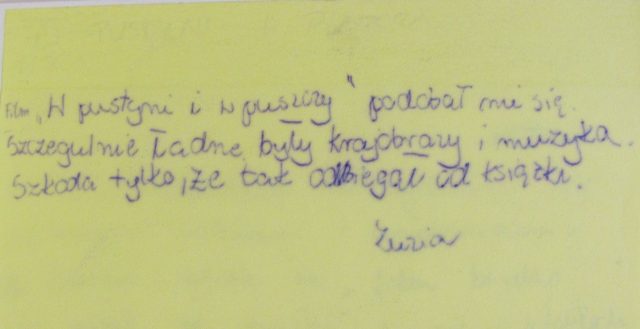 Film „W pustyni i w puszczy" podobał mi się.
Szczegulnie ładne były krajobrazy i muzyka.
Szkoda tylko, że tak odbiegał od książki.
Zuzia